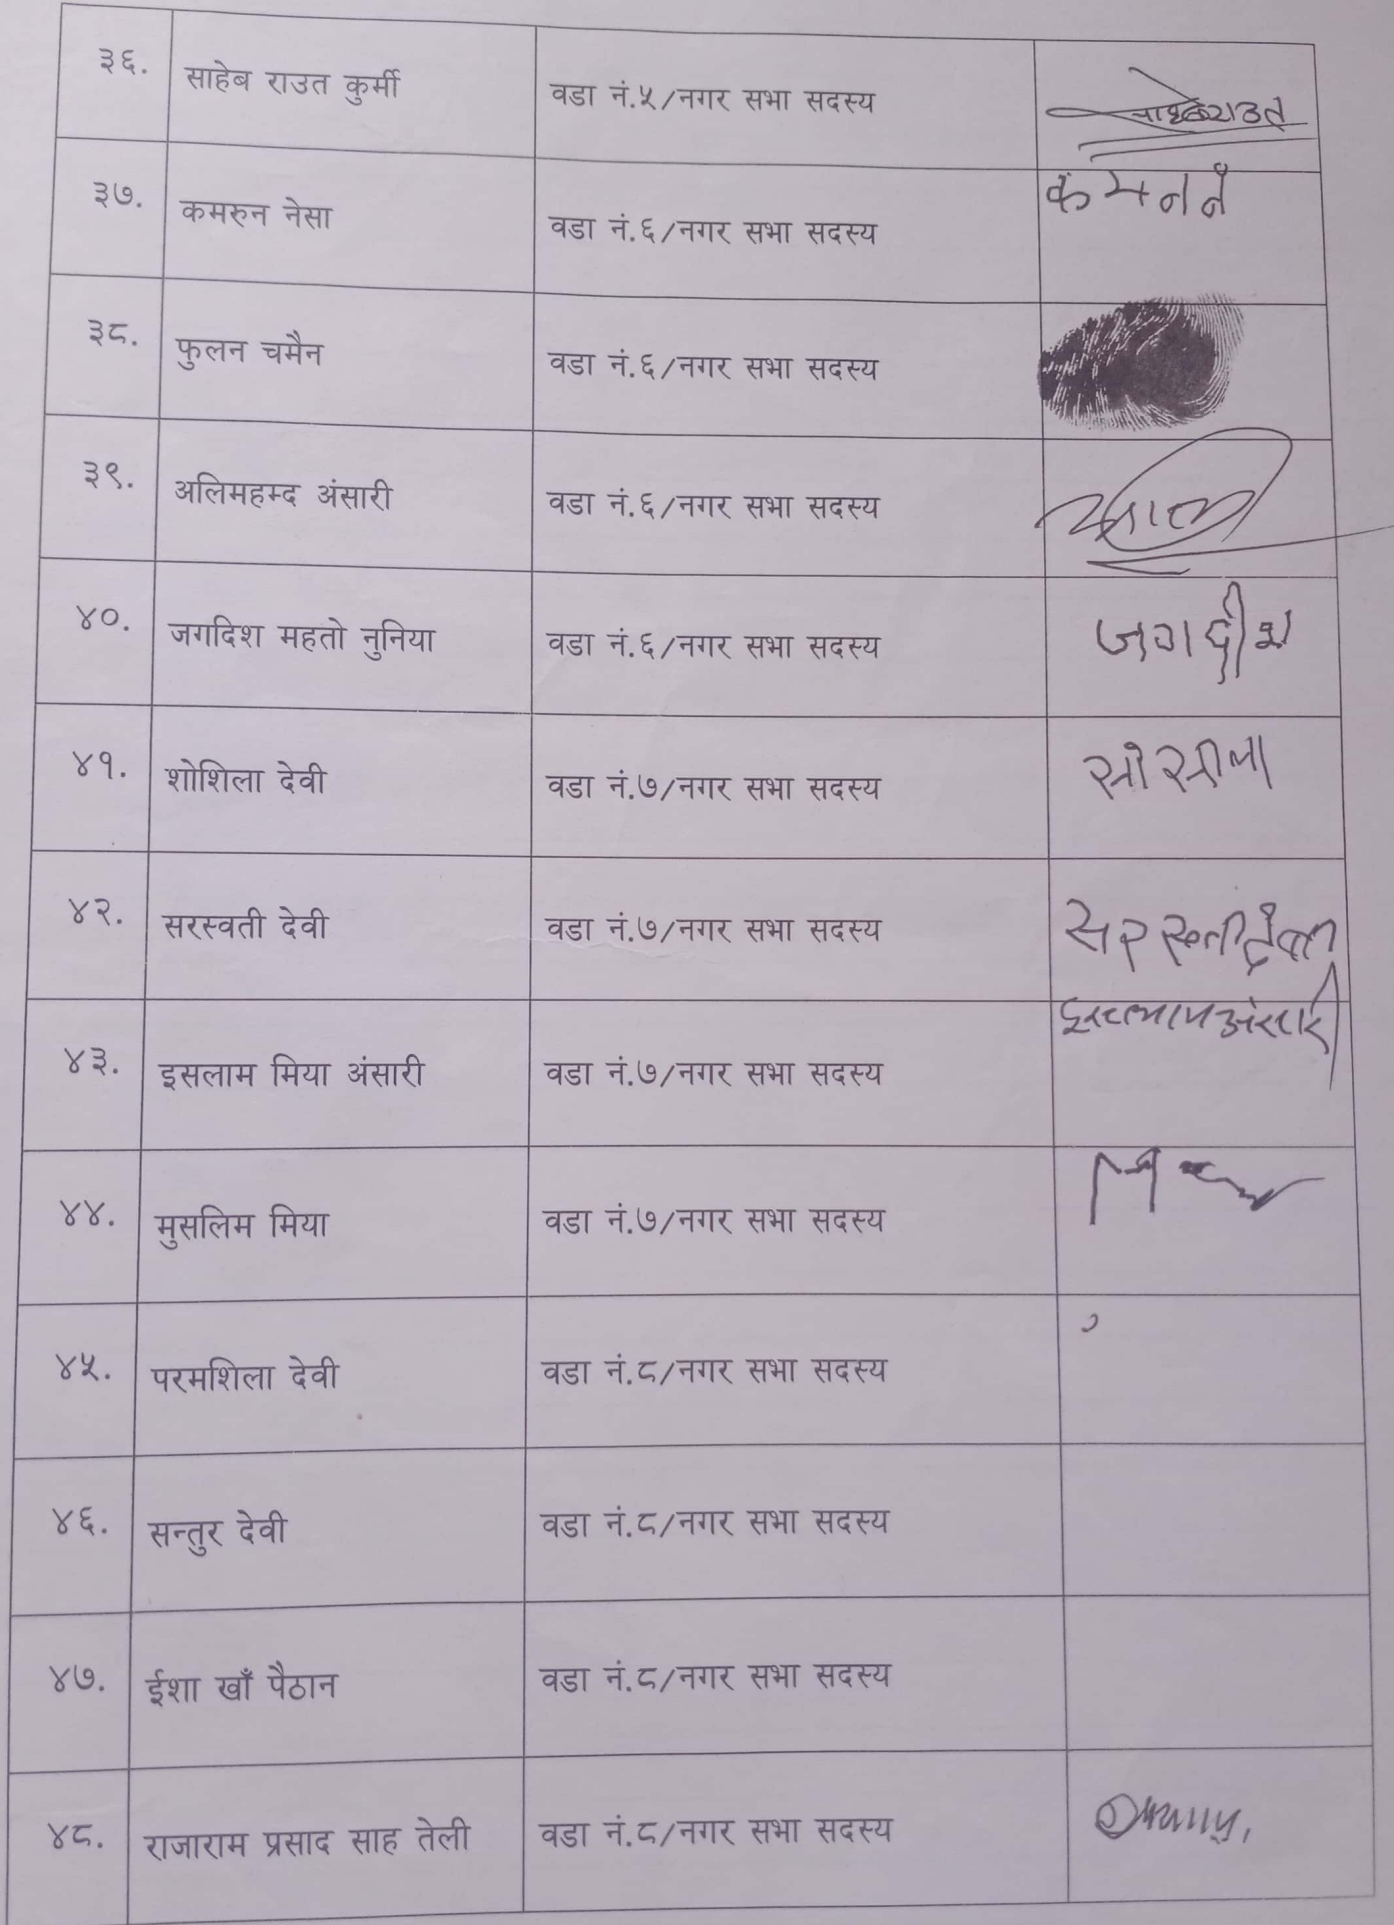 ३६. साहेब राउत कुर्मी वडा नं.५/नगर सभा सदस्य
३७. कमरुन नेसा वडा नं.६/नगर सभा सदस्य कमनने
३८. फुलन चमैन वडा नं.६/नगर सभा सदस्य
३९. अलिमहम्द अंसारी वडा नं.६/नगर सभा सदस्य
४०. जगदिश महतो नुनिया वडा नं.६/नगर सभा सदस्य जगदीश
४१. शोशिला देवी वडा नं.७/नगर सभा सदस्य सोसीला
४२. सरस्वती देवी वडा नं.७/नगर सभा सदस्य
४३. इसलाम मिया अंसारी वडा नं.७/नगर सभा सदस्य
४४. मुसलिम मिया वडा नं.७/नगर सभा सदस्य
४५. परमशिला देवी वडा नं.८/नगर सभा सदस्य
४६. सन्तुर देवी वडा नं.८/नगर सभा सदस्य
४७. ईशा खाँ पैठान वडा नं.८/नगर सभा सदस्य
४८. राजाराम प्रसाद साह तेली वडा नं.८/नगर सभा सदस्य